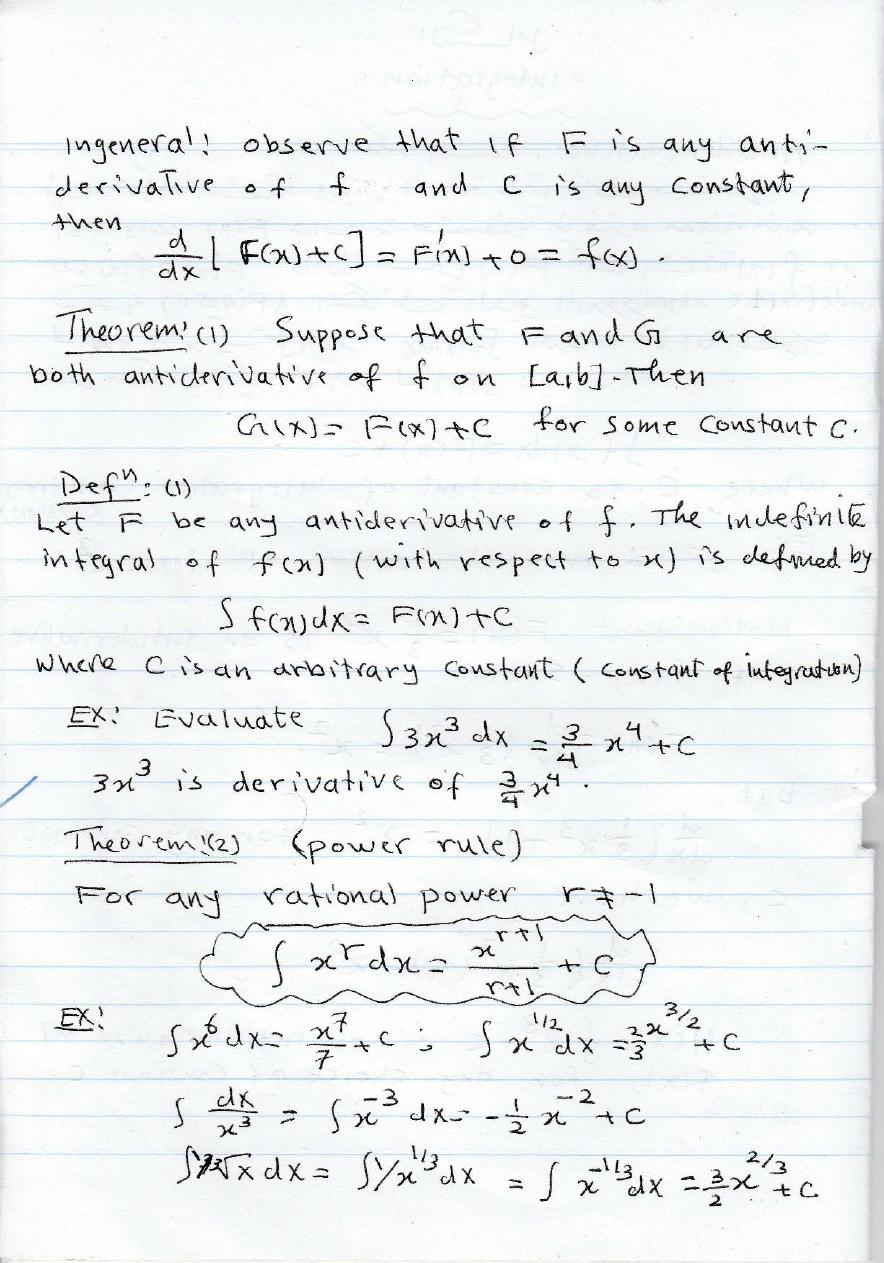 Ingeneral: observe that if F is any anti-
derivative of f and C is any constant,
then
d/dx [F(x)+C] = F'(x) + 0 = f(x).
Theorem: (1) Suppose that F and G are
both antiderivative of f on [a,b]. Then
G(x) = F(x)+C for some constant C.
Defⁿ: (1)
Let F be any antiderivative of f. The indefinite
integral of f(x) (with respect to x) is defined by
∫ f(x)dx = F(x)+C
Where C is an arbitrary constant (constant of integration)
EX: Evaluate ∫ 3x³ dx = 3/4 x⁴ + C
3x³ is derivative of 3/4 x⁴.
Theorem:(2) (power rule)
For any rational power r ≠ -1
∫ x^r dx = x^(r+1)/(r+1) + C
EX:
∫ x⁶ dx = x⁷/7 + C ; ∫ x^(1/2) dx = 2/3 x^(3/2) + C
∫ dx/x³ = ∫ x^(-3) dx = -1/2 x^(-2) + C
∫ 1/³√x dx = ∫ 1/x^(1/3) dx = ∫ x^(-1/3) dx = 3/2 x^(2/3) + C